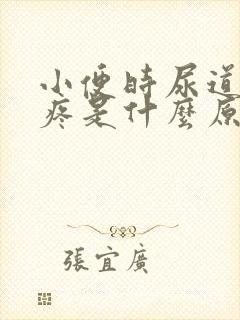 小便時尿道
疼是什麼原
張宜廣